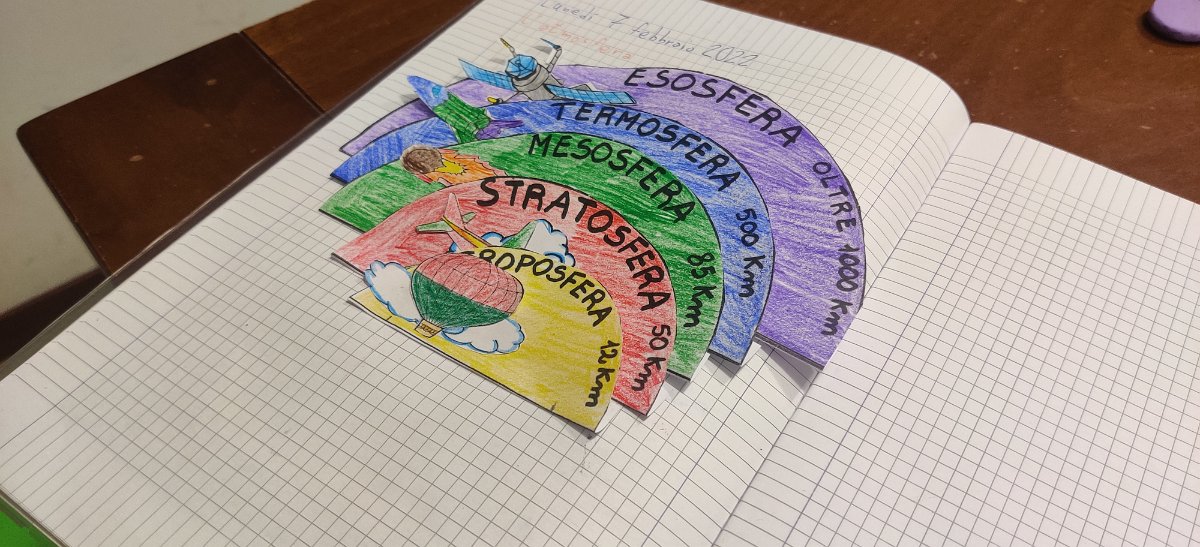 Lunedì 7 febbraio 2022
L'atmosfera
ESOSFERA OLTRE 1000 Km
TERMOSFERA 500 Km
MESOSFERA 85 Km
STRATOSFERA 50 Km
TROPOSFERA 12 Km